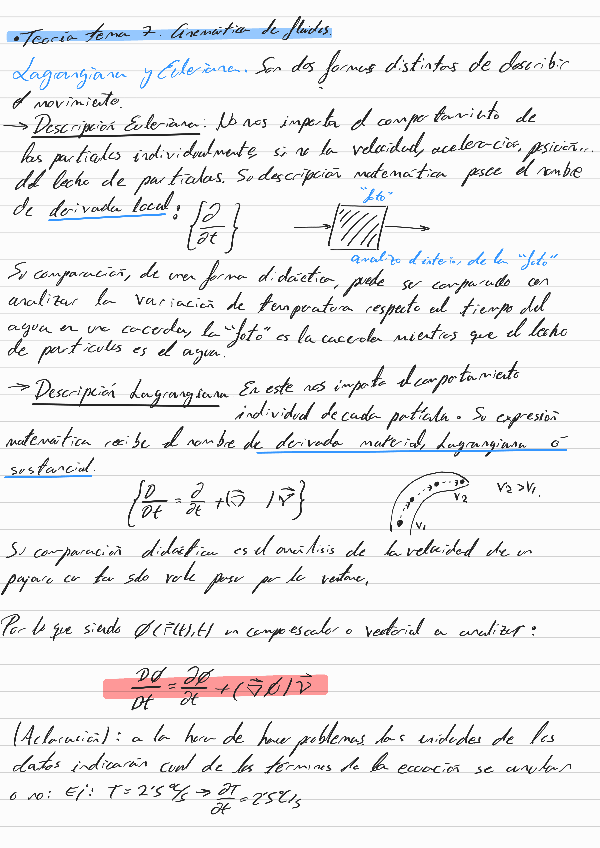 • Teoría tema 7. Cinemática de fluidos.
Lagrangiana y Euleriana. Son dos formas distintas de describir
el movimiento.
→ Descripción Euleriana: No nos importa el comportamiento de
las partículas individualmente, si no la velocidad, aceleración, posición...
del lecho de partículas. Su descripción matemática posee el nombre
"foto"
de derivada local: {∂/∂t}
analizo el interior de la "foto"
Su comparación, de una forma didáctica, puede ser comparado con
analizar la variación de temperatura respecto al tiempo del
agua en una cacerola, la "foto" es la cacerola mientras que el lecho
de partículas es el agua.
→ Descripción Lagrangiana En este nos importa el comportamiento
individual de cada partícula. Su expresión
matemática recibe el nombre de derivada material, Lagrangiana o
sustancial.
{D/Dt = ∂/∂t + (∇⃗ )v⃗}
V1 V2 V2 > V1.
Su comparación didáctica es el análisis de la velocidad de un
pájaro en tan solo verle pasar por la ventana.
Por lo que siendo Ø(r⃗(t),t) un campo escalar o vectorial a analizar:
DØ/Dt = ∂Ø/∂t + (∇⃗Ø)v⃗
(Aclaración): a la hora de hacer problemas, las unidades de los
datos indicarán cual de los términos de la ecuación se anulan
o no: Ej: T = 2'5 ºC/s → ∂T/∂t = 2'5ºC/s